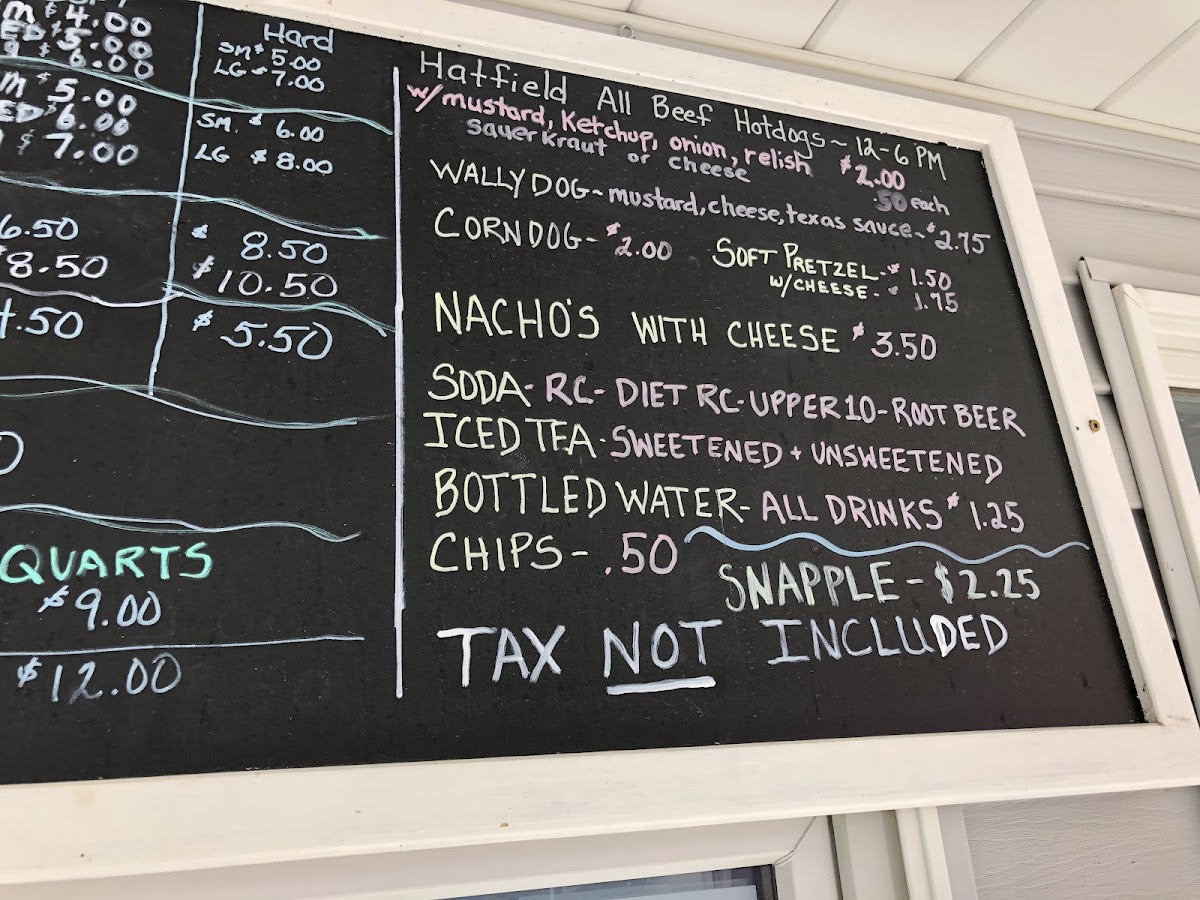 $4.00
$5.00
$6.00
$5.00
$6.00
$7.00
6.50
8.50
4.50
QUARTS
$9.00
$12.00
Hard
SM $5.00
LG - 7.00
SM. $6.00
LG $8.00
$8.50
$10.50
$5.50
Hatfield All Beef Hotdogs ~ 12-6 PM
w/mustard, Ketchup, onion, relish $2.00
sauerkraut or cheese .50 each
WALLY DOG ~ mustard, cheese, texas sauce ~ $2.75
CORN DOG - $2.00
SOFT PRETZEL - $1.50
W/CHEESE. - 1.75
NACHO'S WITH CHEESE $3.50
SODA - RC - DIET RC - UPPER 10 - ROOT BEER
ICED TEA - SWEETENED + UNSWEETENED
BOTTLED WATER - ALL DRINKS $1.25
CHIPS - .50
SNAPPLE - $2.25
TAX NOT INCLUDED